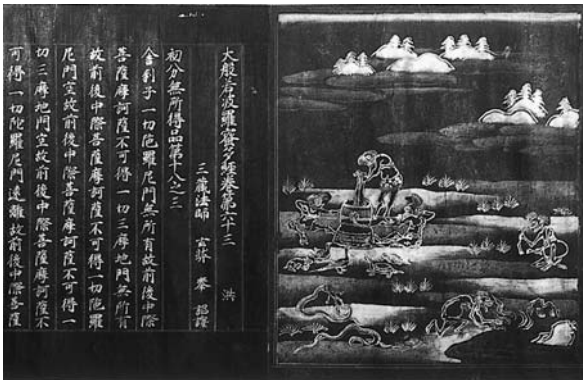 大般若波羅蜜多經卷第六十三 洪
三藏法師 玄奘 奉 詔譯
初分無所得品第十八之三
舍利子一切陀羅尼門無所有故前後中際
菩薩摩訶薩不可得一切三摩地門無所有
故前後中際菩薩摩訶薩不可得一切陀羅
尼門空故前後中際菩薩摩訶薩不可得一
切三摩地門空故前後中際菩薩摩訶薩不
可得一切陀羅尼門遠離故前後中際菩薩